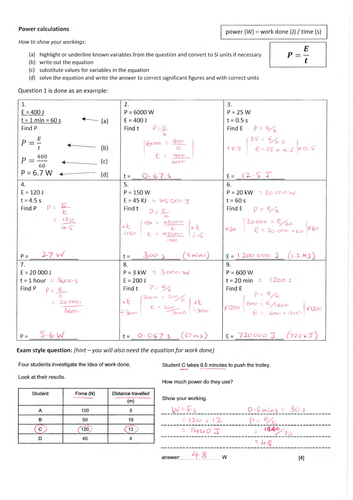 Power calculations
power (W) = work done (J) / time (s)
How to show your workings:
(a) highlight or underline known variables from the question and convert to SI units if necessary
(b) write out the equation
(c) substitute values for variables in the equation
(d) solve the equation and write the answer to correct significant figures and with correct units
P = E
t
Question 1 is done as an example:
1.
E = 400 J
t = 1 min = 60 s (a)
Find P
P = E
t (b)
P = 400
60 (c)
P = 6.7 W (d)
2.
P = 6000 W
E = 400 J
Find t P = E
t
6000 = 400
t
t = 400
6000
t = 0.67 s
3.
P = 25 W
t = 0.5 s
Find E P = E/t
×0.5 25 = E/0.5 ×0.5
E = 25 × 0.5
E = 12.5 J
4.
E = 120 J
t = 4.5 s
Find P P = E
t
= 120
4.5
P = 27 W
5.
P = 150 W
E = 45 KJ = 45000 J
Find t P = E
t
150 = 45000
t
t = 45000
150
t = 300 s (5 mins)
6.
P = 20 kW = 20000 W
t = 60 s
Find E P = E/t
×60 20000 = E/60 ×60
E = 20000 × 60
E = 1200 000 J (1.2 MJ)
7.
E = 20 000 J
t = 1 hour = 3600 s
Find P P = E
t
= 20000
3600
P = 5.6 W
8.
P = 3 kW = 3000 W
E = 200 J
Find t P = E/t
3000 = 200/t
t = 200
3000
t = 0.067 s (67 ms)
9.
P = 600 W
t = 20 min = 1200 s
Find E P = E/t
×1200 600 = E/1200 ×1200
E = 600 × 1200
E = 720000 J (720 kJ)
Exam style question: (hint – you will also need the equation for work done)
Four students investigate the idea of work done.
Look at their results.
Student Force (N) Distance travelled (m)
A 100 5
B 50 10
C 120 12
D 40 4
Student C takes 0.5 minutes to push the trolley.
How much power do they use?
Show your working.
W = Fs 0.5 mins = 30 s
= 120 × 12 P = E/t
= 1440 J = 1440/30
= 48
answer: 48 W [4]